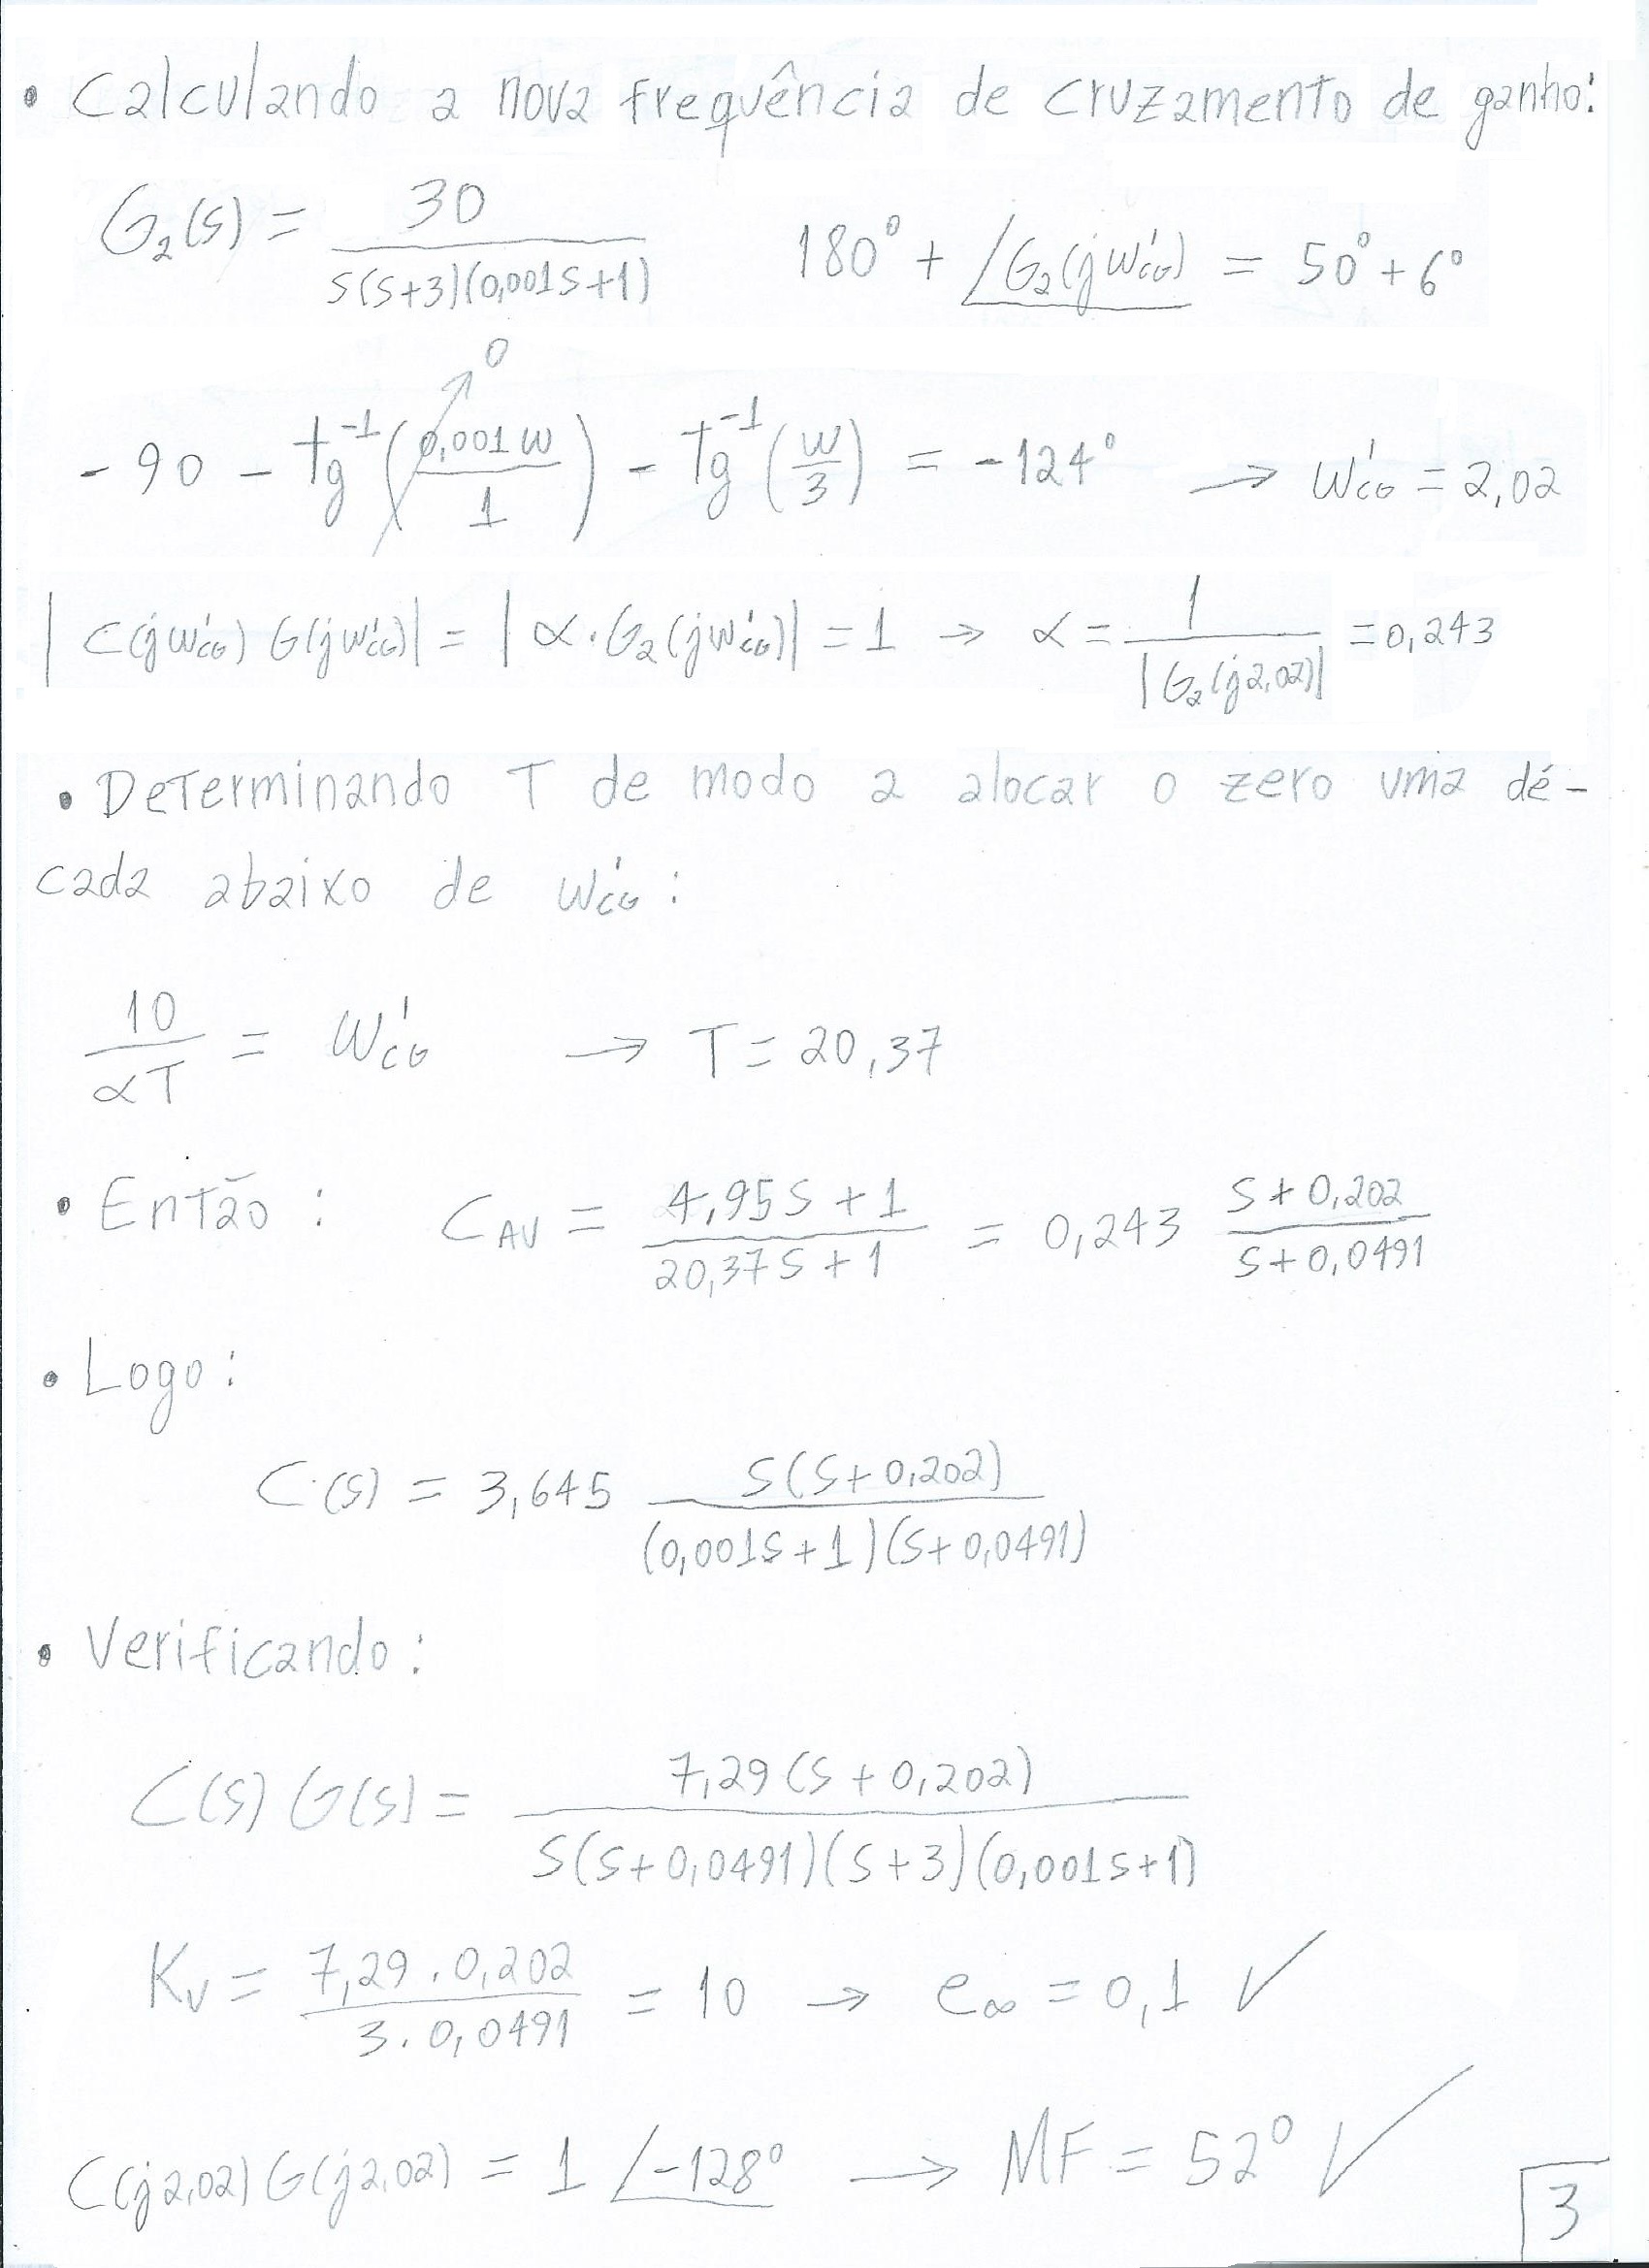 • Calculando a nova frequência de cruzamento de ganho:
G₂(s) = 30 / s(s+3)(0,001s+1)    180° + ∠G₂(jω'cg) = 50° + 6°
-90 - tg⁻¹(0,001ω / 1)↗0 - tg⁻¹(ω/3) = -124° → ω'cg = 2,02
|C(jω'cg) G(jω'cg)| = |α·G₂(jω'cg)| = 1 → α = 1 / |G₂(j2,02)| = 0,243
• Determinando T de modo a alocar o zero uma dé-
cada abaixo de ω'cg:
10 / αT = ω'cg → T = 20,37
• Então: C_AV = 4,95s + 1 / 20,37s + 1 = 0,243 s + 0,202 / s + 0,0491
• Logo:
C(s) = 3,645 s(s + 0,202) / (0,001s + 1)(s + 0,0491)
• Verificando:
C(s)G(s) = 7,29(s + 0,202) / s(s + 0,0491)(s + 3)(0,001s + 1)
Kv = 7,29 . 0,202 / 3 . 0,0491 = 10 → e∞ = 0,1 ✓
C(j2,02)G(j2,02) = 1 ∠-128° → MF = 52° ✓
3